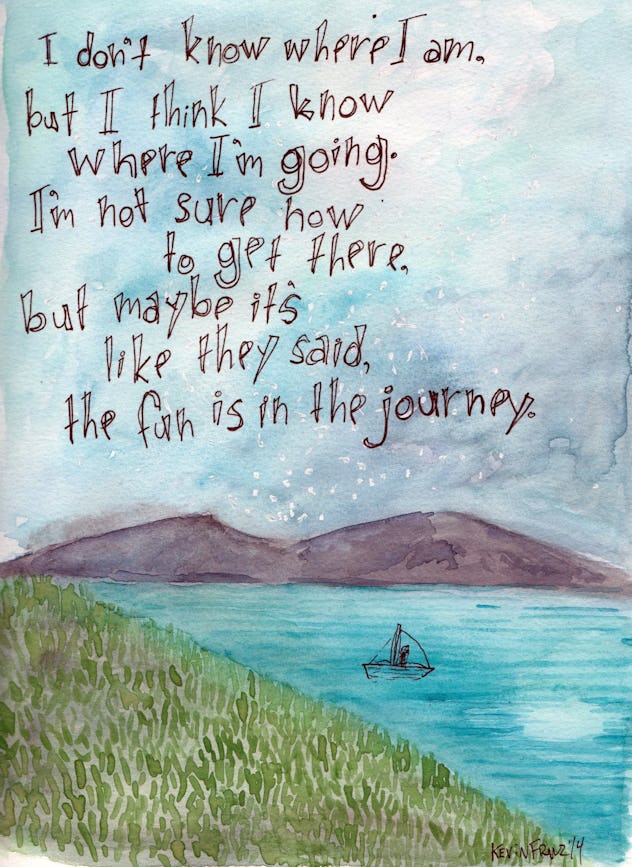 I don't know where I am,
but I think I know
where I'm going.
I'm not sure how
to get there,
but maybe it's
like they said,
the fun is in the journey.
KEVIN FRANZ '14